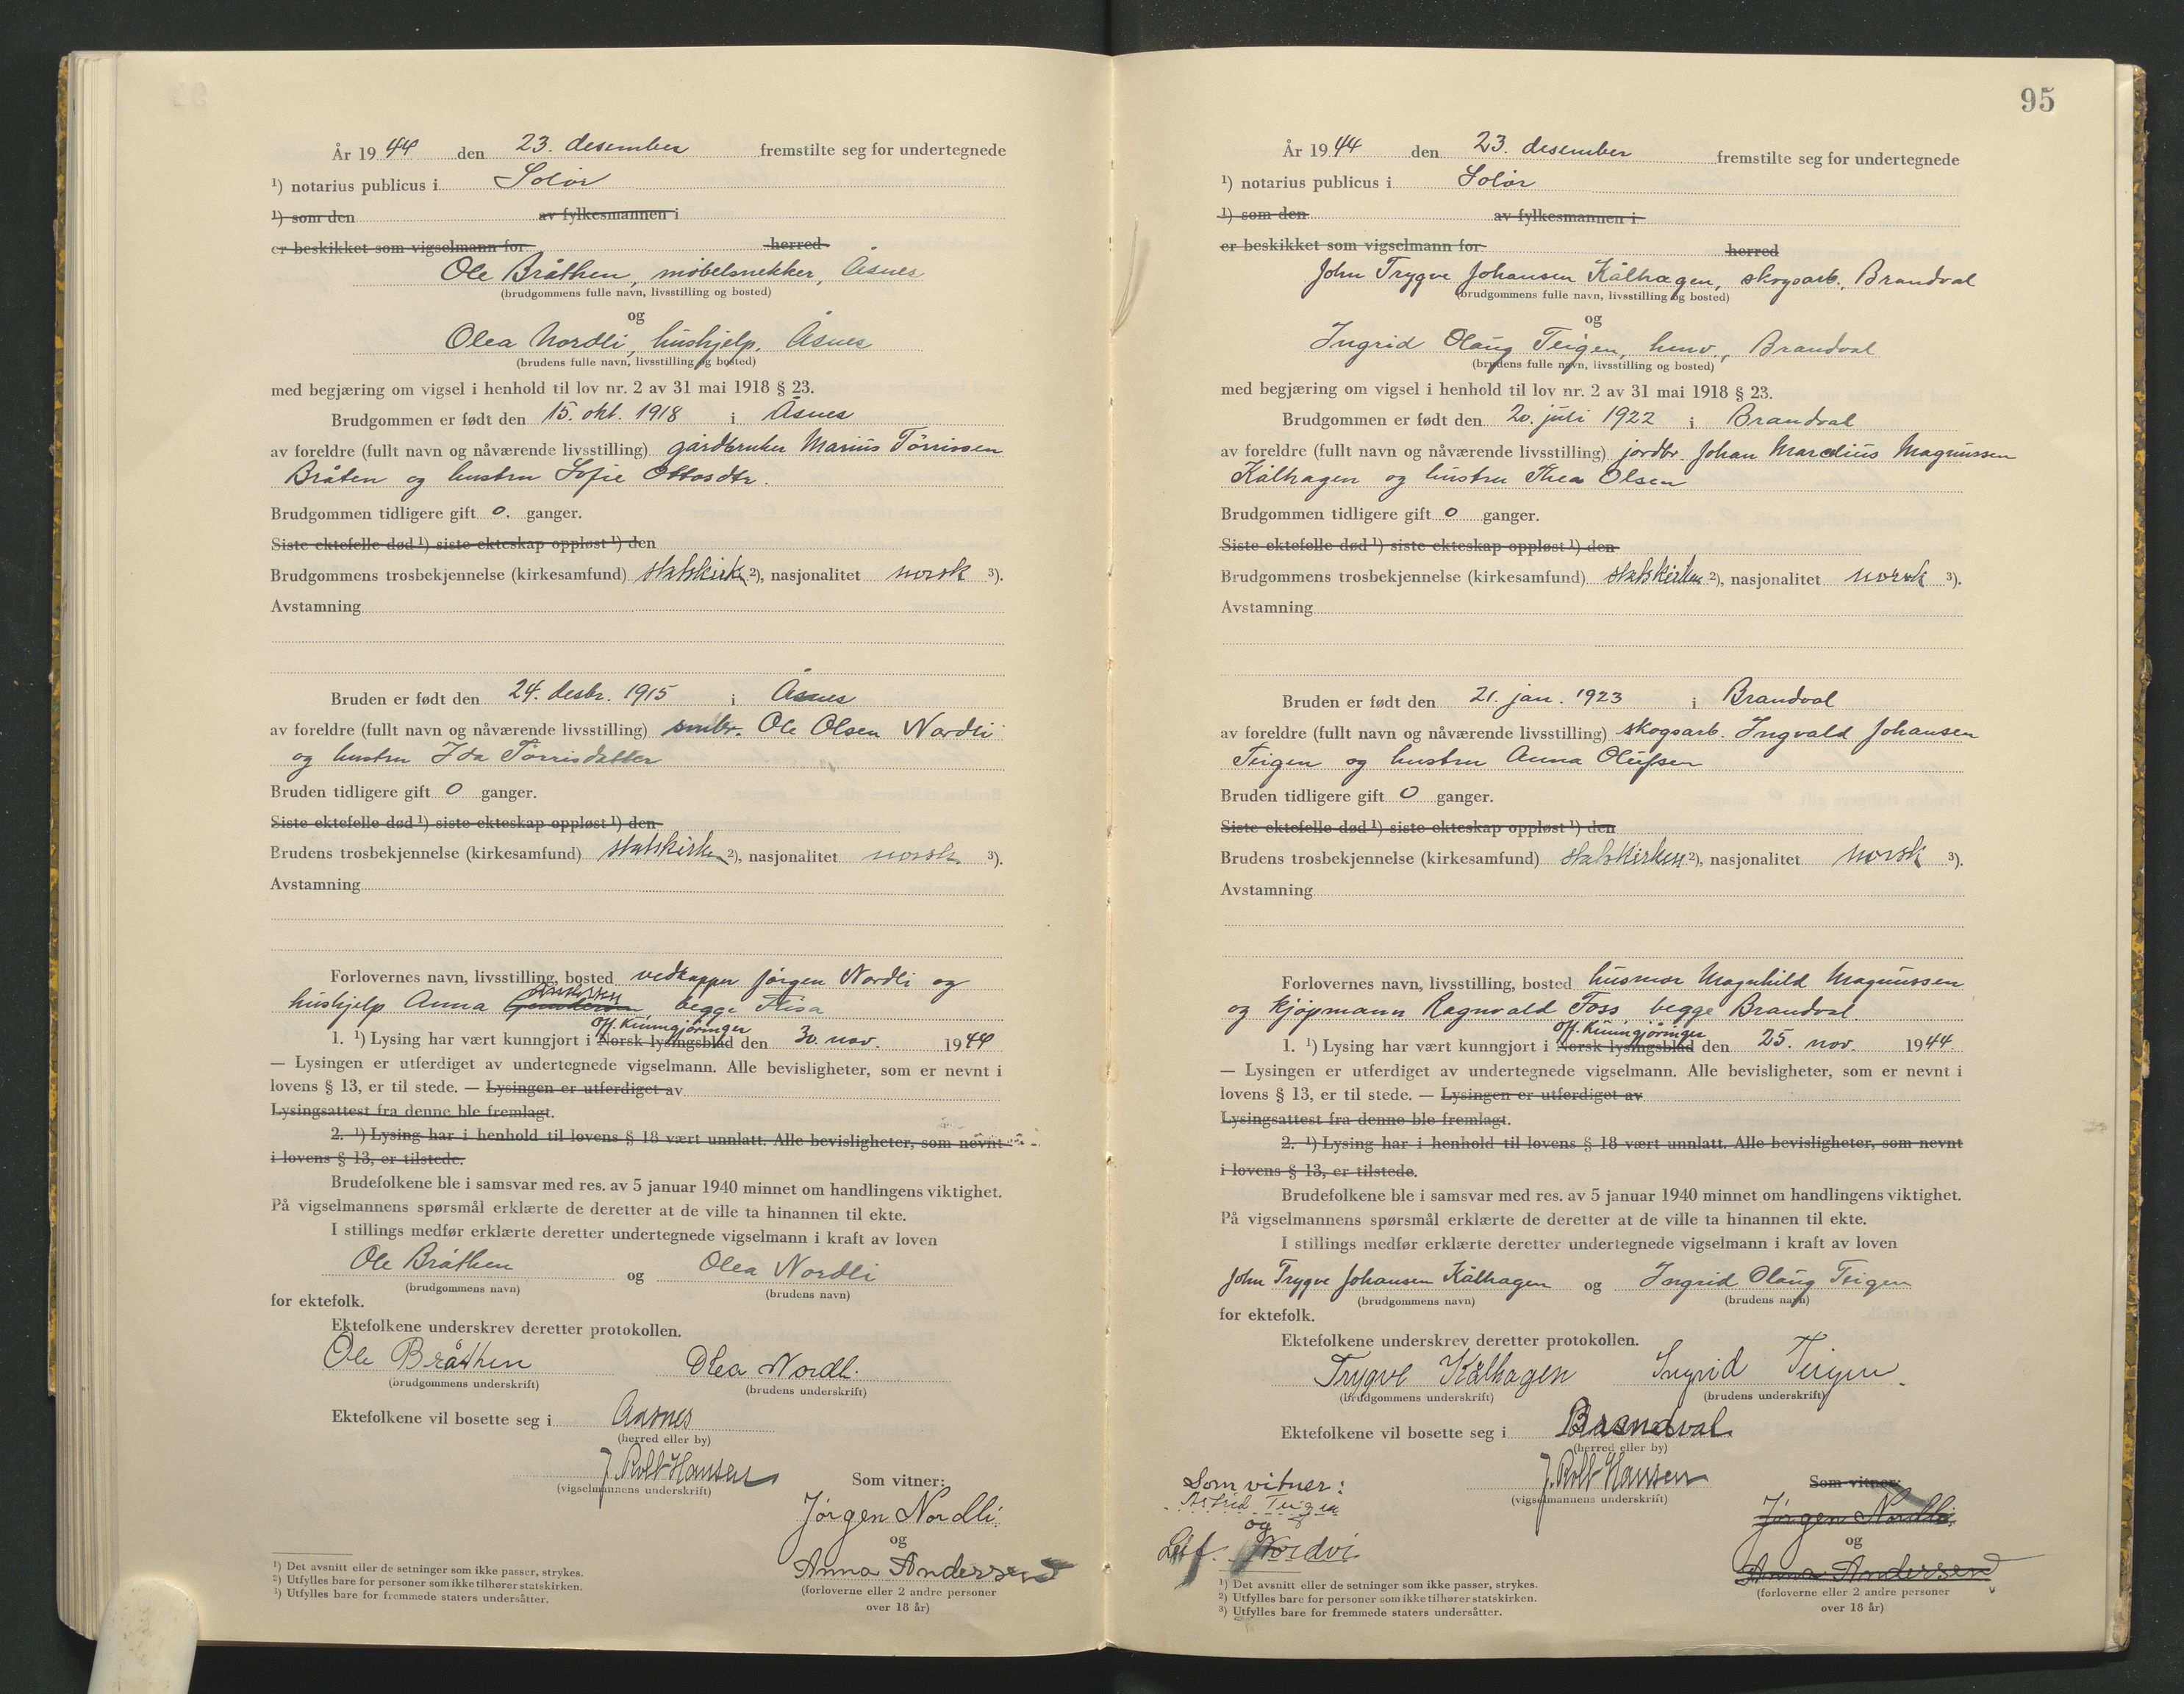 År 1944 den 23. desember fremstilte seg for undertegnede
¹) notarius publicus i Solør
¹) som den av fylkesmannen i
er beskikket som vigselmann for herred
Ole Bråthen, møbelsnekker, Åsnes
(brudgommens fulle navn, livsstilling og bosted)
og
Olea Nordli, hushjelp, Åsnes
(brudens fulle navn, livsstilling og bosted)
med begjæring om vigsel i henhold til lov nr. 2 av 31 mai 1918 § 23.
Brudgommen er født den 15. okt. 1918 i Åsnes
av foreldre (fullt navn og nåværende livsstilling) gårdbruker Marius Tørrissen
Bråten og hustru Sofie Ottosdtr.
Brudgommen tidligere gift 0. ganger.
Siste ektefelle død ¹) siste ekteskap oppløst ¹) den
Brudgommens trosbekjennelse (kirkesamfund) statskirken ²), nasjonalitet norsk ³).
Avstamning
Bruden er født den 24. desbr. 1915 i Åsnes
av foreldre (fullt navn og nåværende livsstilling) småbr. Ole Olsen Nordli
og hustru Ida Tørrisdatter
Bruden tidligere gift 0 ganger.
Siste ektefelle død ¹) siste ekteskap oppløst ¹) den
Brudens trosbekjennelse (kirkesamfund) statskirken ²), nasjonalitet norsk ³).
Avstamning
Forlovernes navn, livsstilling, bosted vedkapper Jørgen Nordli og
Andersen
hushjelp Anna begge Flisa
Off. Kunngjøringer
1. ¹) Lysing har vært kunngjort i Norsk lysingsblad den 30. nov. 1944
— Lysingen er utferdiget av undertegnede vigselmann. Alle bevisligheter, som er nevnt i
lovens § 13, er til stede. — Lysingen er utferdiget av
Lysingsattest fra denne ble fremlagt.
2. ¹) Lysing har i henhold til lovens § 18 vært unnlatt. Alle bevisligheter, som nevnt
i lovens § 13, er tilstede.
Brudefolkene ble i samsvar med res. av 5 januar 1940 minnet om handlingens viktighet.
På vigselmannens spørsmål erklærte de deretter at de ville ta hinannen til ekte.
I stillings medfør erklærte deretter undertegnede vigselmann i kraft av loven
Ole Bråthen og Olea Nordli
(brudgommens navn) (brudens navn)
for ektefolk.
Ektefolkene underskrev deretter protokollen.
Ole Bråthen Olea Nordli
(brudgommens underskrift) (brudens underskrift)
Ektefolkene vil bosette seg i Aasnes
(herred eller by)
J. Rolt Hansen
(vigselmannens underskrift)
Som vitner:
Jørgen Nordli
og
Anna Andersen
(forloverne eller 2 andre personer
over 18 år)
¹) Det avsnitt eller de setninger som ikke passer, strykes.
²) Utfylles bare for personer som ikke tilhører statskirken.
³) Utfylles bare for fremmede staters undersåtter.
95
År 1944 den 23. desember fremstilte seg for undertegnede
¹) notarius publicus i Solør
¹) som den av fylkesmannen i
er beskikket som vigselmann for herred
John Trygve Johansen Kålhagen, skogsarb., Brandval
(brudgommens fulle navn, livsstilling og bosted)
og
Ingrid Olaug Teigen, hmv., Brandval
(brudens fulle navn, livsstilling og bosted)
med begjæring om vigsel i henhold til lov nr. 2 av 31 mai 1918 § 23.
Brudgommen er født den 20. juli 1922 i Brandval
av foreldre (fullt navn og nåværende livsstilling) jordbr. Johan Marcelius Magnussen
Kålhagen og hustru Thea Olsen
Brudgommen tidligere gift 0 ganger.
Siste ektefelle død ¹) siste ekteskap oppløst ¹) den
Brudgommens trosbekjennelse (kirkesamfund) statskirken ²), nasjonalitet norsk ³).
Avstamning
Bruden er født den 21. jan. 1923 i Brandval
av foreldre (fullt navn og nåværende livsstilling) skogsarb. Ingvald Johansen
Teigen og hustru Anna Olufsen
Bruden tidligere gift 0 ganger.
Siste ektefelle død ¹) siste ekteskap oppløst ¹) den
Brudens trosbekjennelse (kirkesamfund) statskirken ²), nasjonalitet norsk ³).
Avstamning
Forlovernes navn, livsstilling, bosted husmor Magnhild Magnussen
og kjøpmann Ragnvald Foss begge Brandval.
Off. Kunngjøringer
1. ¹) Lysing har vært kunngjort i Norsk lysingsblad den 25. nov. 1944.
— Lysingen er utferdiget av undertegnede vigselmann. Alle bevisligheter, som er nevnt i
lovens § 13, er til stede. — Lysingen er utferdiget av
Lysingsattest fra denne ble fremlagt.
2. ¹) Lysing har i henhold til lovens § 18 vært unnlatt. Alle bevisligheter, som nevnt
i lovens § 13, er tilstede.
Brudefolkene ble i samsvar med res. av 5 januar 1940 minnet om handlingens viktighet.
På vigselmannens spørsmål erklærte de deretter at de ville ta hinannen til ekte.
I stillings medfør erklærte deretter undertegnede vigselmann i kraft av loven
John Trygve Johansen Kålhagen og Ingrid Olaug Teigen
(brudgommens navn) (brudens navn)
for ektefolk.
Ektefolkene underskrev deretter protokollen.
Trygve Kålhagen Ingrid Teigen
(brudgommens underskrift) (brudens underskrift)
Ektefolkene vil bosette seg i Brandval
(herred eller by)
J. Rolt Hansen
(vigselmannens underskrift)
Som vitner:
Jørgen Nordli
og
Anna Andersen
(forloverne eller 2 andre personer
over 18 år)
Som vitner:
Astrid Teigen
og
Leif Nordvi
¹) Det avsnitt eller de setninger som ikke passer, strykes.
²) Utfylles bare for personer som ikke tilhører statskirken.
³) Utfylles bare for fremmede staters undersåtter.